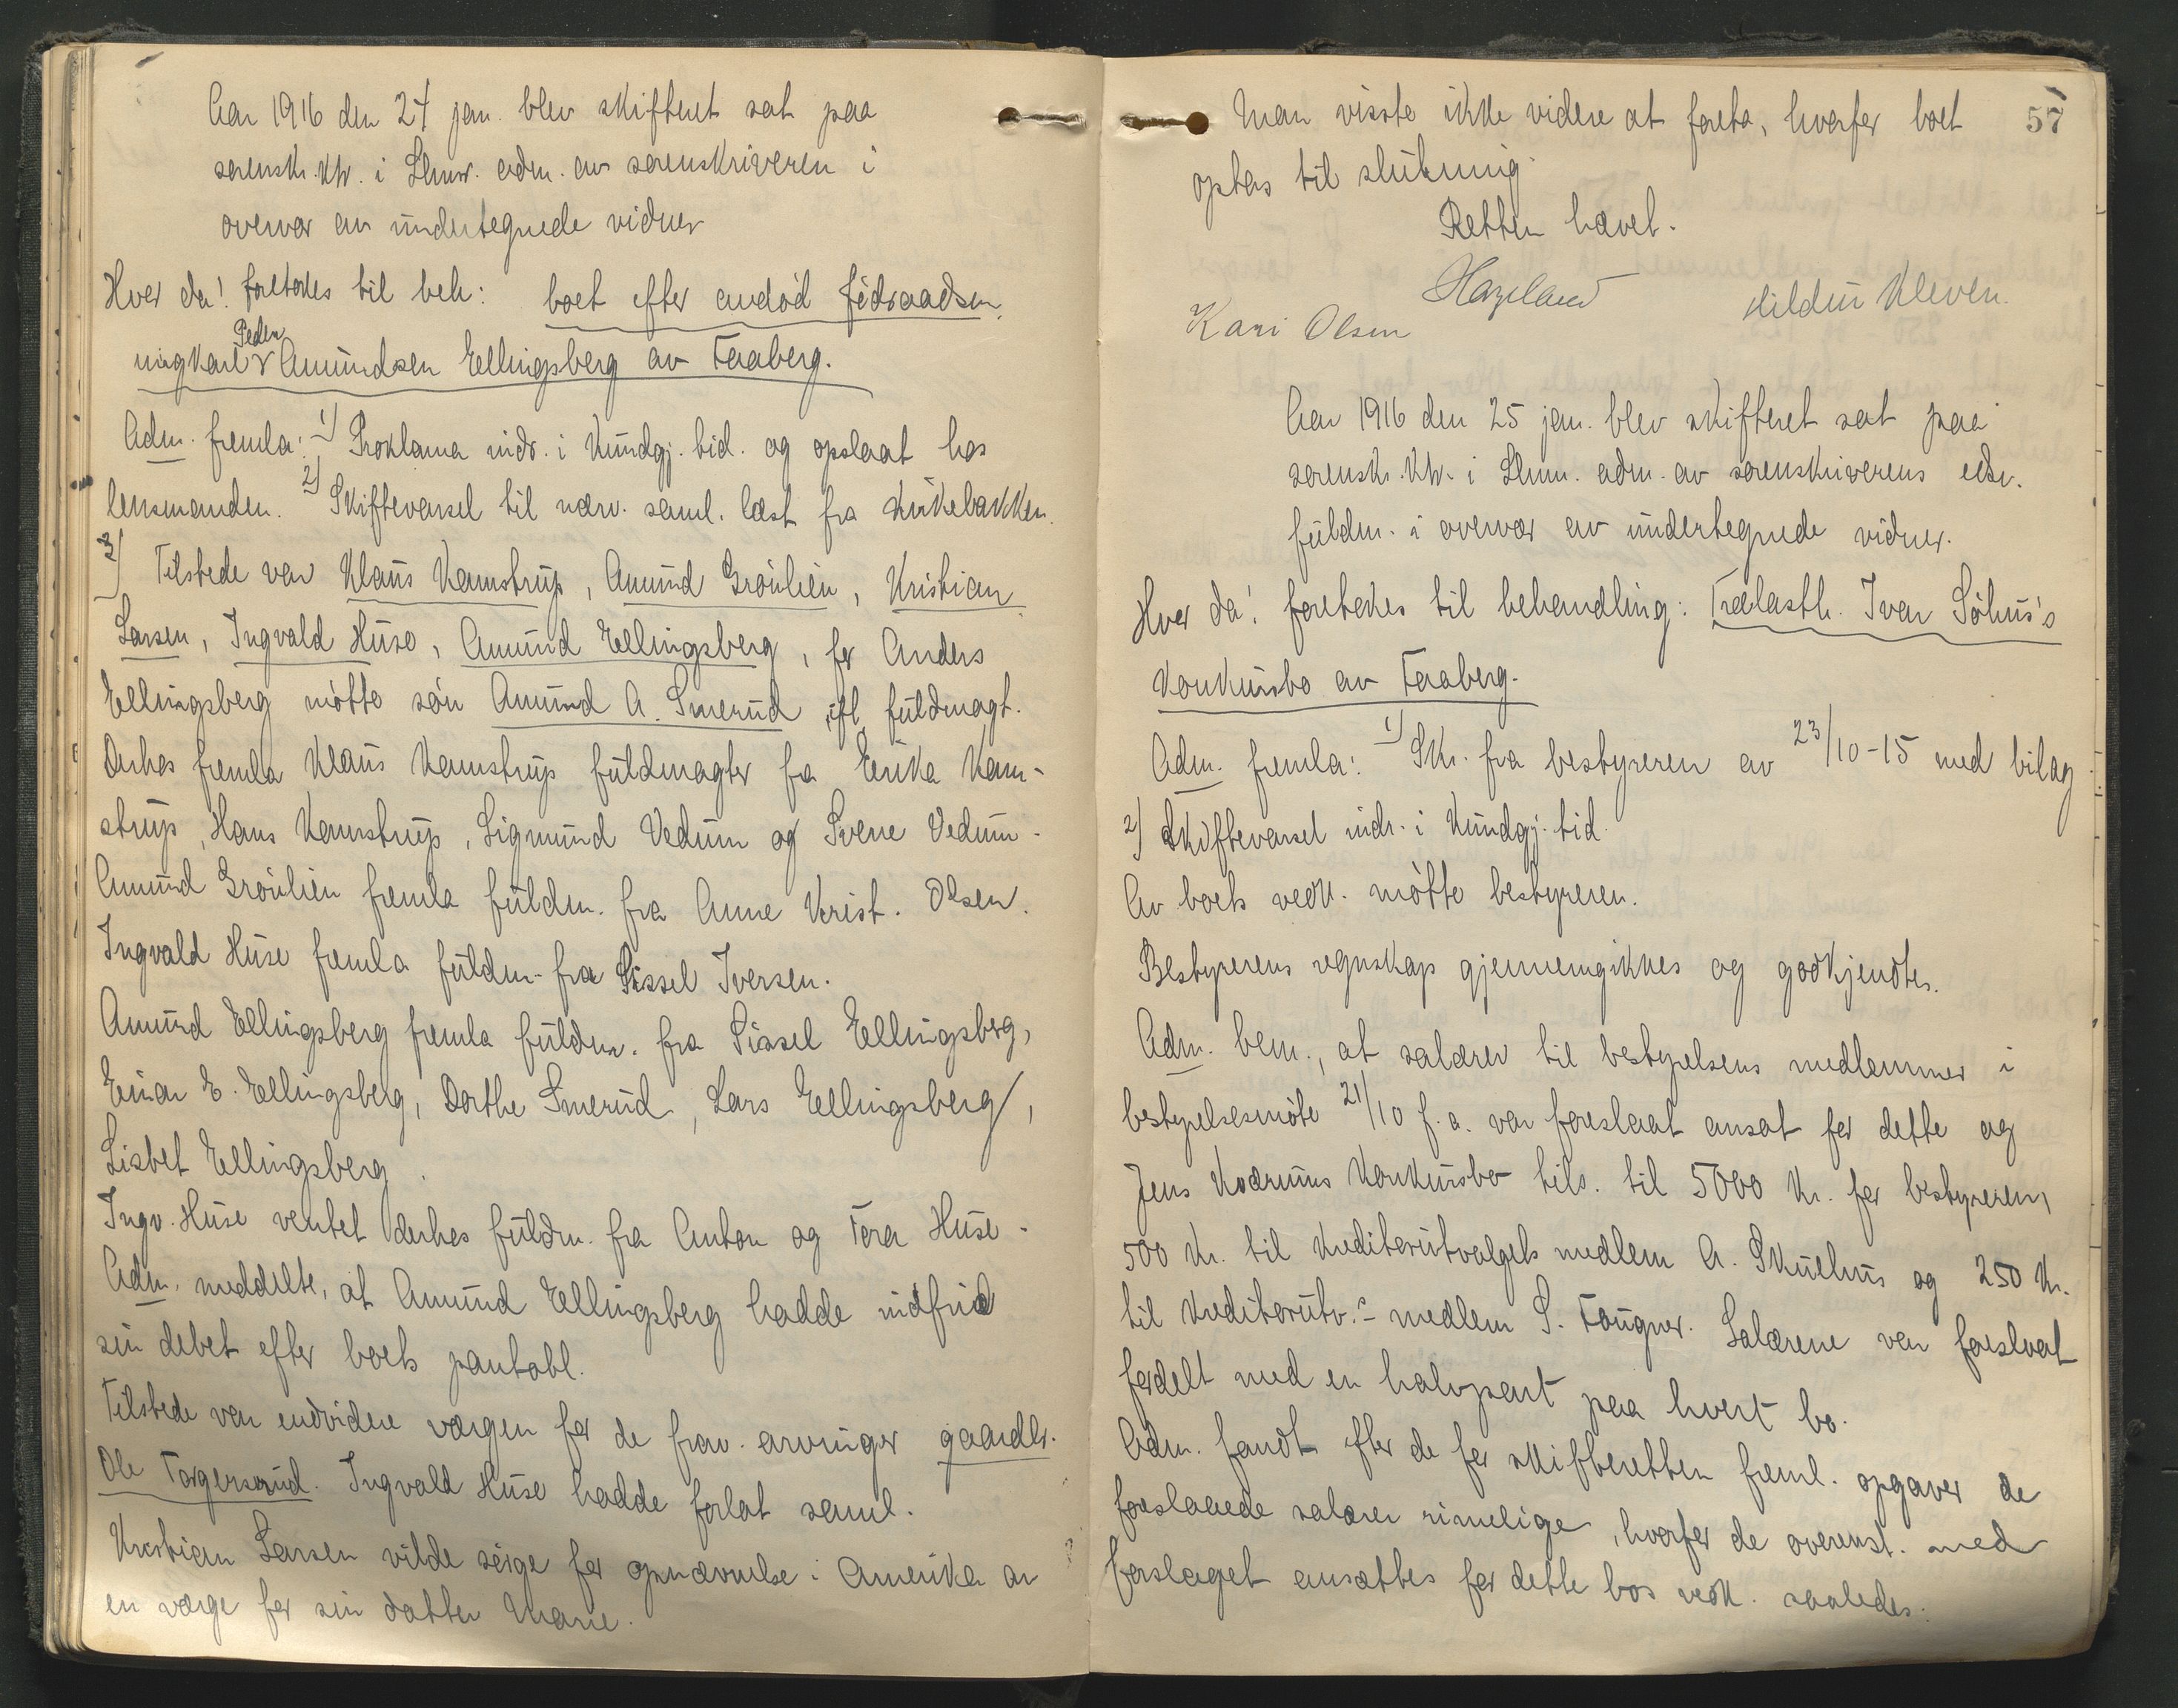 Aar 1916 den 24 jan. blev skifteret sat paa
sorenskr. ktr. i Lhmr. adm. av sorenskriveren i
overvær av undertegnede vidner
Hvor da! foretokes til beh: boet efter avdød föderaadsm.
Peder
ungkarl Amundsen Ellingsberg av Faaberg.
Adm. fremla: 1) Proklama indr. i Kundgj. tid. og opslaat hos
lensmanden. 2) Skiftevarsel til nærv. saml. læst fra kirkebakken.
3) Tilstede var Klaus Kamstrup, Amund Gröulien, Kristian
Larsen, Ingvald Huse, Amund Ellingsberg, for Anders
Ellingsberg mötte sön Amund A. Smerud ifl. fuldmagt.
Derhos fremla Klaus Kamstrup fuldmagter fra Erika Kam-
strup, Hans Kamstrup, Sigmund Vedum og Sverre Vedum.
Amund Gröulien fremla fuldm. fra Anne Krist. Olsen.
Ingvald Huse fremla fuldm. fra Sissel Iversen.
Amund Ellingsberg fremla fuldm. fra Sissel Ellingsberg,
Einar E. Ellingsberg, Dorthe Smerud, Lars Ellingsberg,
Lisbet Ellingsberg.
Ingv. Huse ventet derhos fuldm. fra Anton og Tora Huse.
Adm. meddelte, at Amund Ellingsberg hadde indfriet
sin debet efter boets pantobl.
Tilstede var endvidere værgen for de frav. arvinger gaardbr.
Ole Torgersrud. Ingvald Huse hadde forlat saml.
Kristian Larsen vilde sörge for opnævnelse i Amerika av
en værge for sin datter Marie.
57
Man visste ikke videre at foreta, hvorfor boet
optas til slutning.
Retten hævet.
Hazeland
Kari Olsen
Hildur Kleven.
Aar 1916 den 25 jan. blev skifteret sat paa
sorenskr. ktr. i Lhmr. adm. av sorenskriverens edsv.
fuldm. i overvær av undertegnede vidner.
Hvor da! foretokes til behandling: Trælasth. Ivar Söhus's
konkursbo av Faaberg.
Adm. fremla: 1) Skr. fra bestyreren av 23/10-15 med bilag.
2) Skiftevarsel indr. i Kundgj. tid.
Av boets vedk. mötte bestyreren.
Bestyrerens regnskap gjennemgikkes og godkjendtes.
Adm. bem., at salærer til bestyrelsens medlemmer i
bestyrelsesmöte 21/10 f.a. var foreslaat ansat for dette og
Jens konkursbo tils. til 5000 kr. for bestyreren,
500 kr. til kreditorutvalgets medlem A. Skulhus og 250 kr.
til kreditorutv.s medlem S. Fougner. Salærene var foreslaat
fordelt med en halvpart paa hvert bo.
Adm. fandt efter de for skifteretten freml. opgaver de
foreslaaede salærer rimelige, hvorfor de overenst. med
forslaget ansættes for dette bos vedk. saaledes: